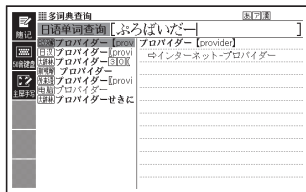 多词典查询
あ ア 漢
随记
日语单词查询［ふろばいだー ］
プロバイダー【prov
プロバイダー【provi
プロバイダー③⓪【
プロバイダー
プロバイダー【provi
电脑 プロバイダー
プロバイダーせきに
プロバイダー【provider】
⇨インターネット-プロバイダー
50音键盘
手写